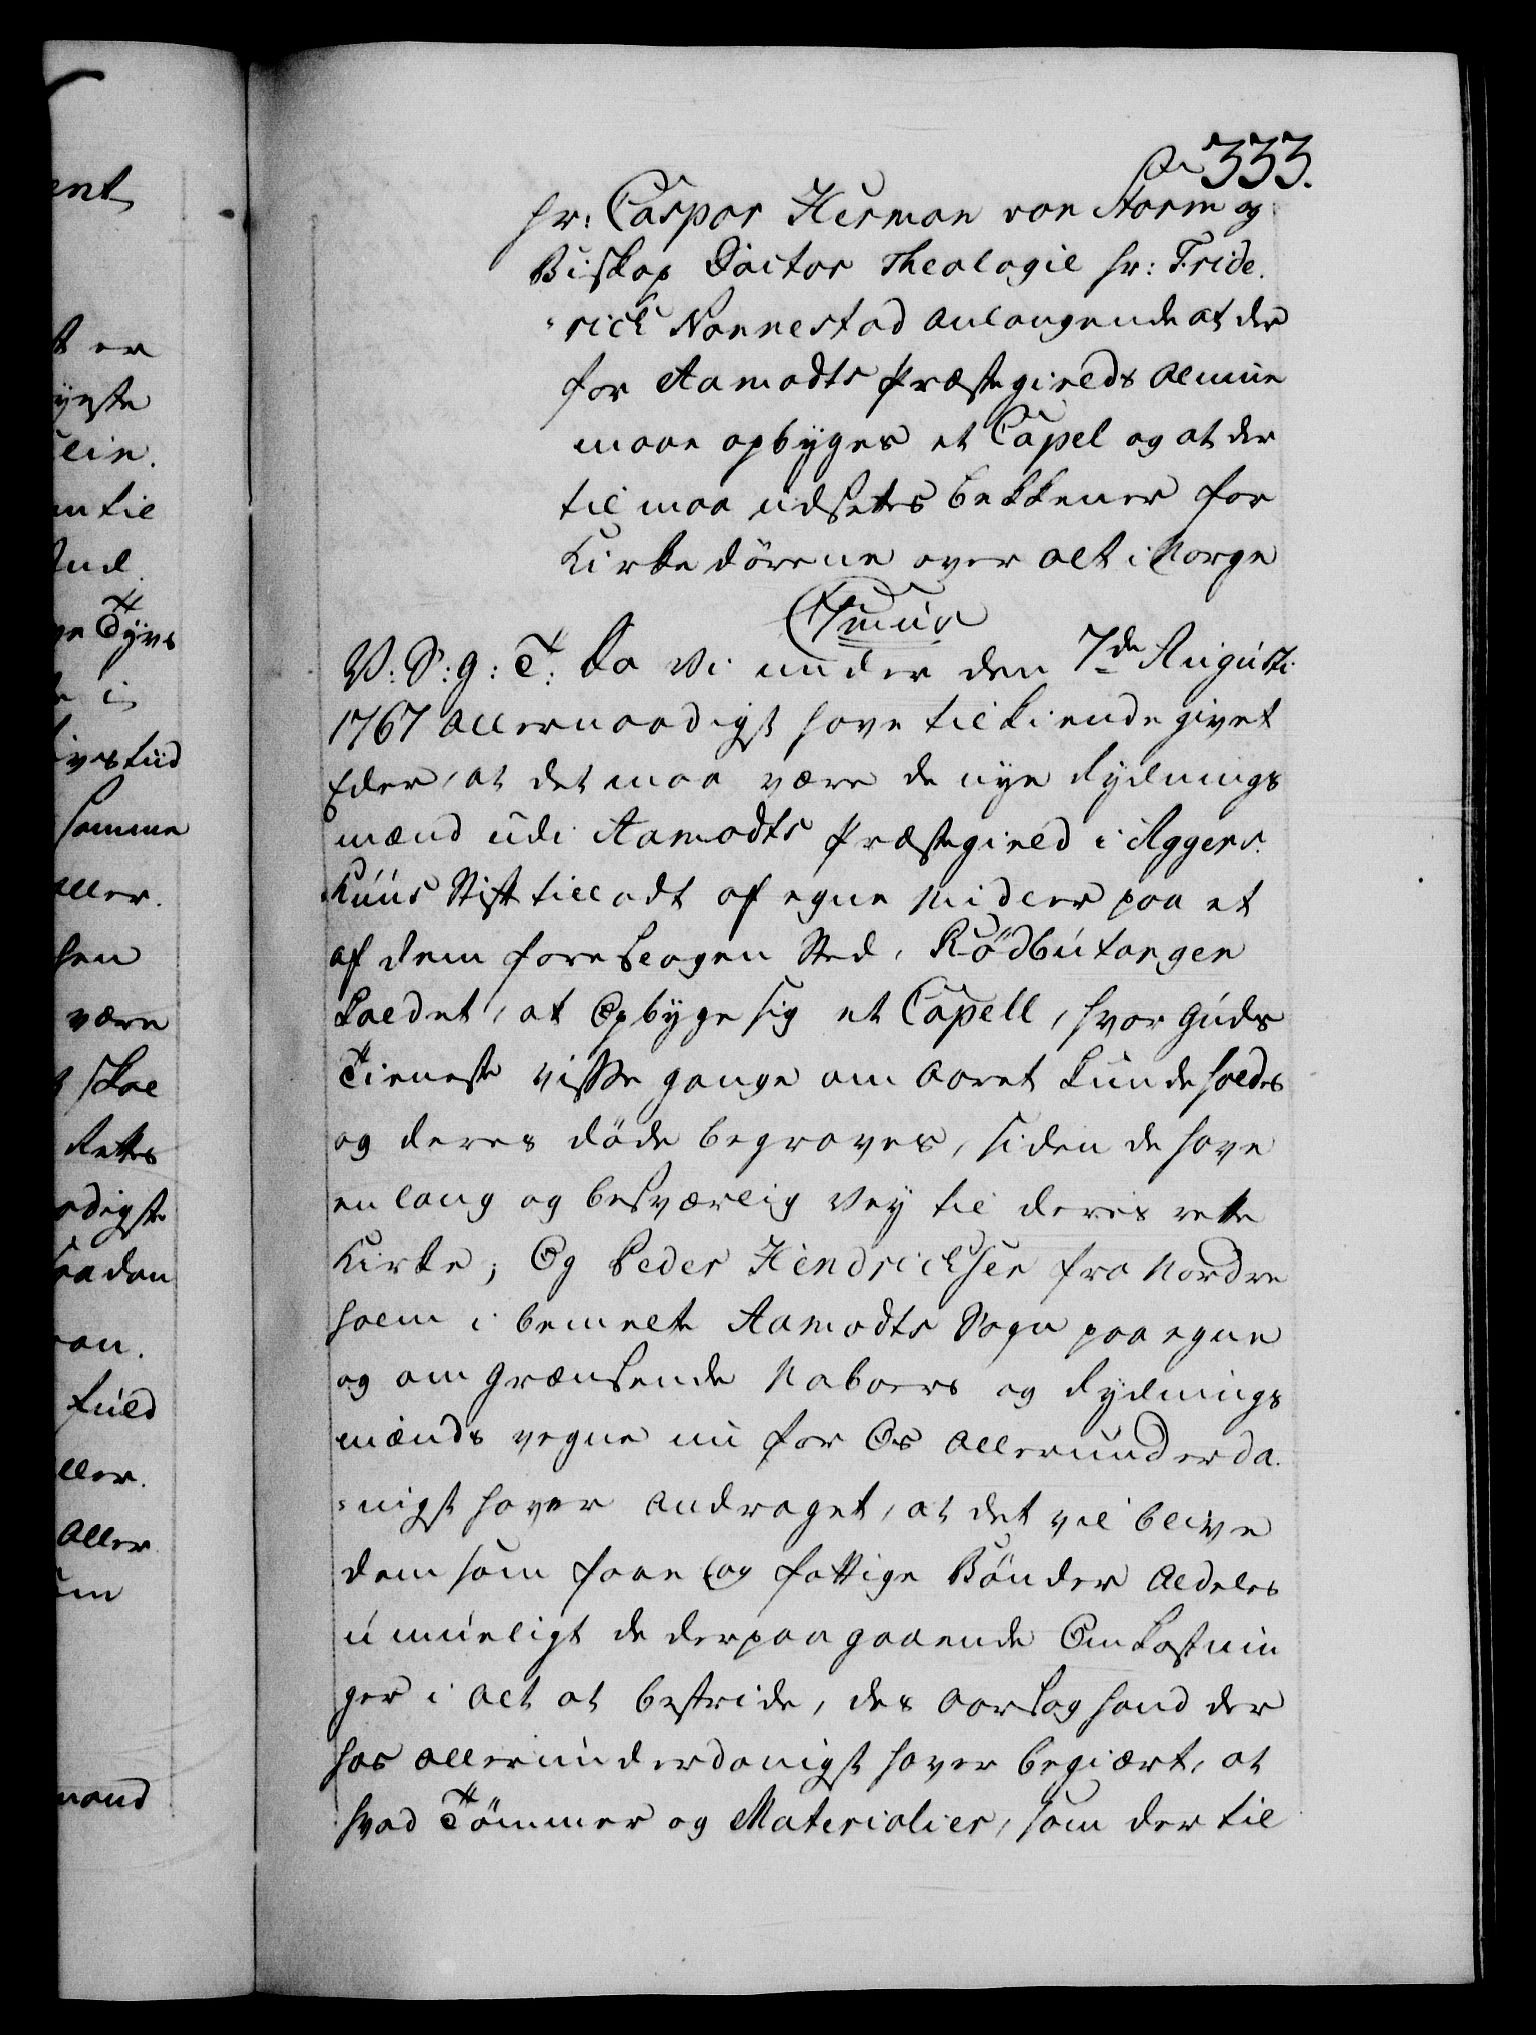 333.
Hr: Caspar Herman von Storm og
Biskop Doctor Theologiæ Hr: Fride-
-rich Nannestad anlangende at der
for Aamodts Præstegields Almue
maae opbyges et Capel og at der
til maa udsættes Bekkener for
Kirkedörene over alt i Norge
V: S: g: T: Da Vi under den 7de Augusti
1767 allernaadigst have tilkiendegivet
Eder, at det maa være de nye Rydnings
mænd udi Aamodts Præstegield i Agger-
huus Stift tilladt af egne Midler paa et
af dem foreslagen Sted, Rödbutangen
kaldet, at Opbyge sig et Capell, hvor Guds
Tieneste visse gange om Aaret kunde holdes
og deres döde begraves, siden de have
en lang og besværlig Vey til deres rette
Kirke; Og Peder Hendrichsen fra Nordre
holm i bemelte Aamodts Sogn paa egne
og omgrændsende Naboers og Rydnings
mænds vegne nu for Os allerunderda-
-nigst haver andraget, at det vil blive
dem som faae og fattige Bönder aldeles
umueligt de derpaa gaaende Omkostnin
ger i alt at bestride, des Aarsag hand der
hos allerunderdanigst haver begiært, at
hvad Tömmer og Materialier, som dertil
ent
er
yeste
til
Tyvs
i
ivstiid
samme
aller-
sen
være
skal
Rettes
adigste
saadan
fuld
ller-
Aller
mand